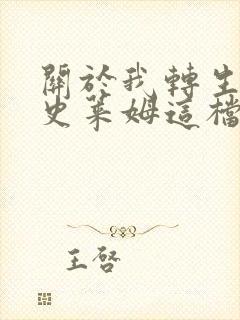 關於我轉生
史萊姆這檔
王啓